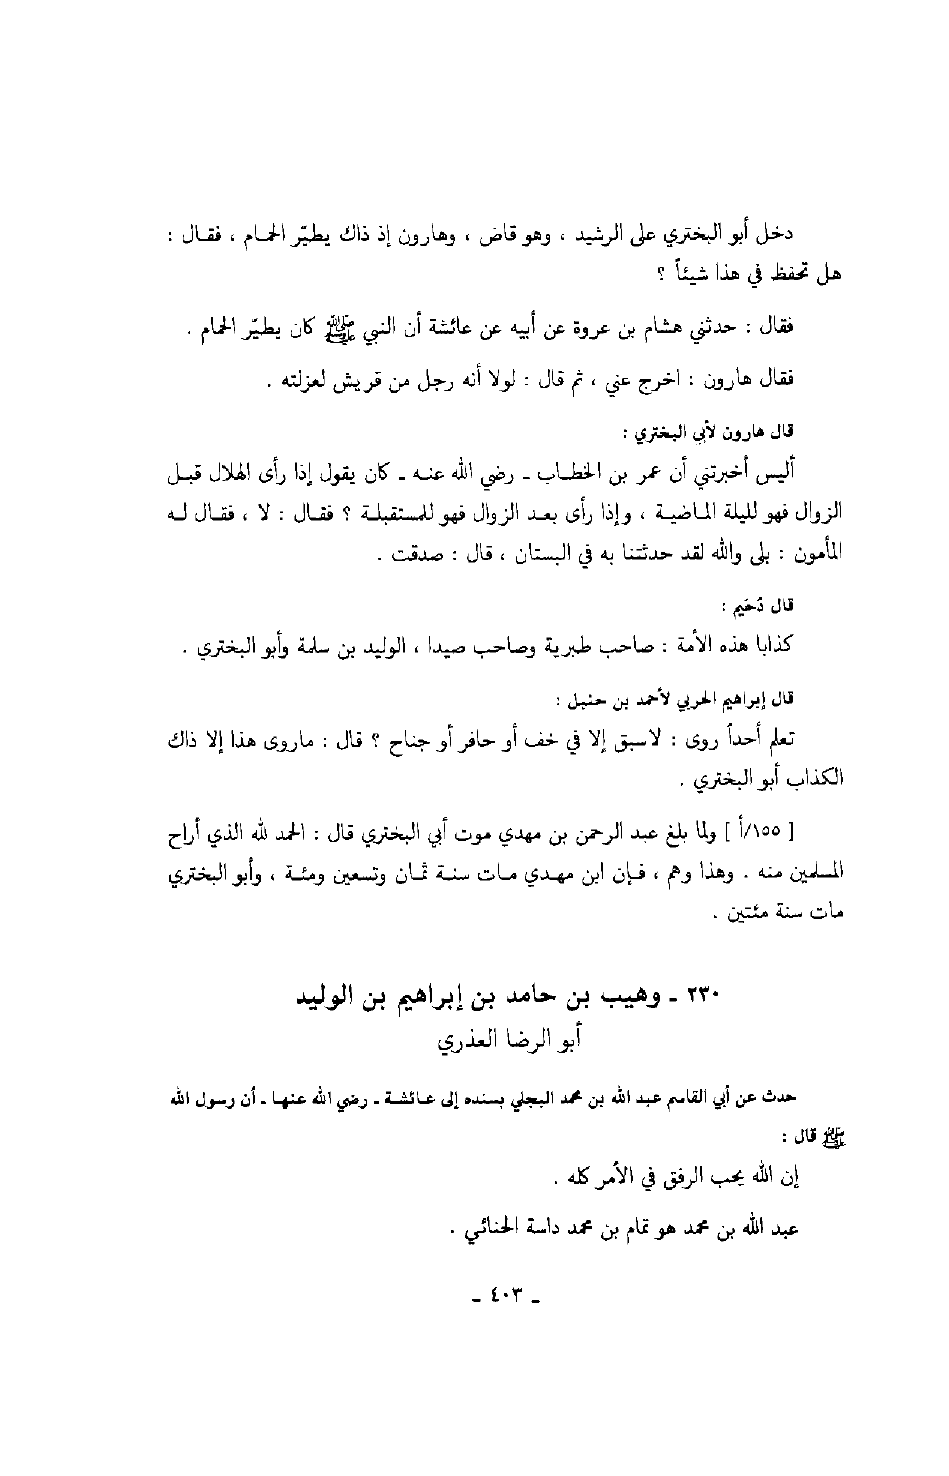 دخل أبو البختري على الرشيد ، وهو قاض ، وهارون إذ ذاك يطيّر الحمام ، فقال :
هل تحفظ في هذا شيئاً ؟
فقال : حدثني هشام بن عروة عن أبيه عن عائشة أن النبي ﷺ كان يطيّر الحمام .
فقال هارون : اخرج عني ، ثم قال : لولا أنه رجل من قريش لعزلته .
قال هارون لأبي البختري :
أليس أخبرتني أن عمر بن الخطاب ـ رضي الله عنه ـ كان يقول إذا رأى الهلال قبل
الزوال فهو لليلة الماضية ، وإذا رأى بعد الزوال فهو للمستقبلة ؟ فقال : لا ، فقال له
المأمون : بلى والله لقد حدثتنا به في البستان ، قال : صدقت .
قال دُحَيم :
كذابا هذه الأمة : صاحب طبرية وصاحب صيدا ، الوليد بن سلمة وأبو البختري .
قال إبراهيم الحربي لأحمد بن حنبل :
تعلم أحداً روى : لاسبق إلا في خف أو حافر أو جناح ؟ قال : ماروى هذا إلا ذاك
الكذاب أبو البختري .
[ ١٥٥/أ ] ولما بلغ عبد الرحمن بن مهدي موت أبي البختري قال : الحمد لله الذي أراح
المسلمين منه . وهذا وهم ، فإن ابن مهدي مات سنة ثمان وتسعين ومئة ، وأبو البختري
مات سنة مئتين .
٢٣٠ ـ وهيب بن حامد بن إبراهيم بن الوليد
أبو الرضا العذري
حدث عن أبي القاسم عبد الله بن محمد البجلي بسنده إلى عائشة ـ رضي الله عنها ـ أن رسول الله
ﷺ قال :
إن الله يحب الرفق في الأمر كله .
عبد الله بن محمد هو تمام بن محمد داسة الحنائي .
ـ ٤٠٣ ـ